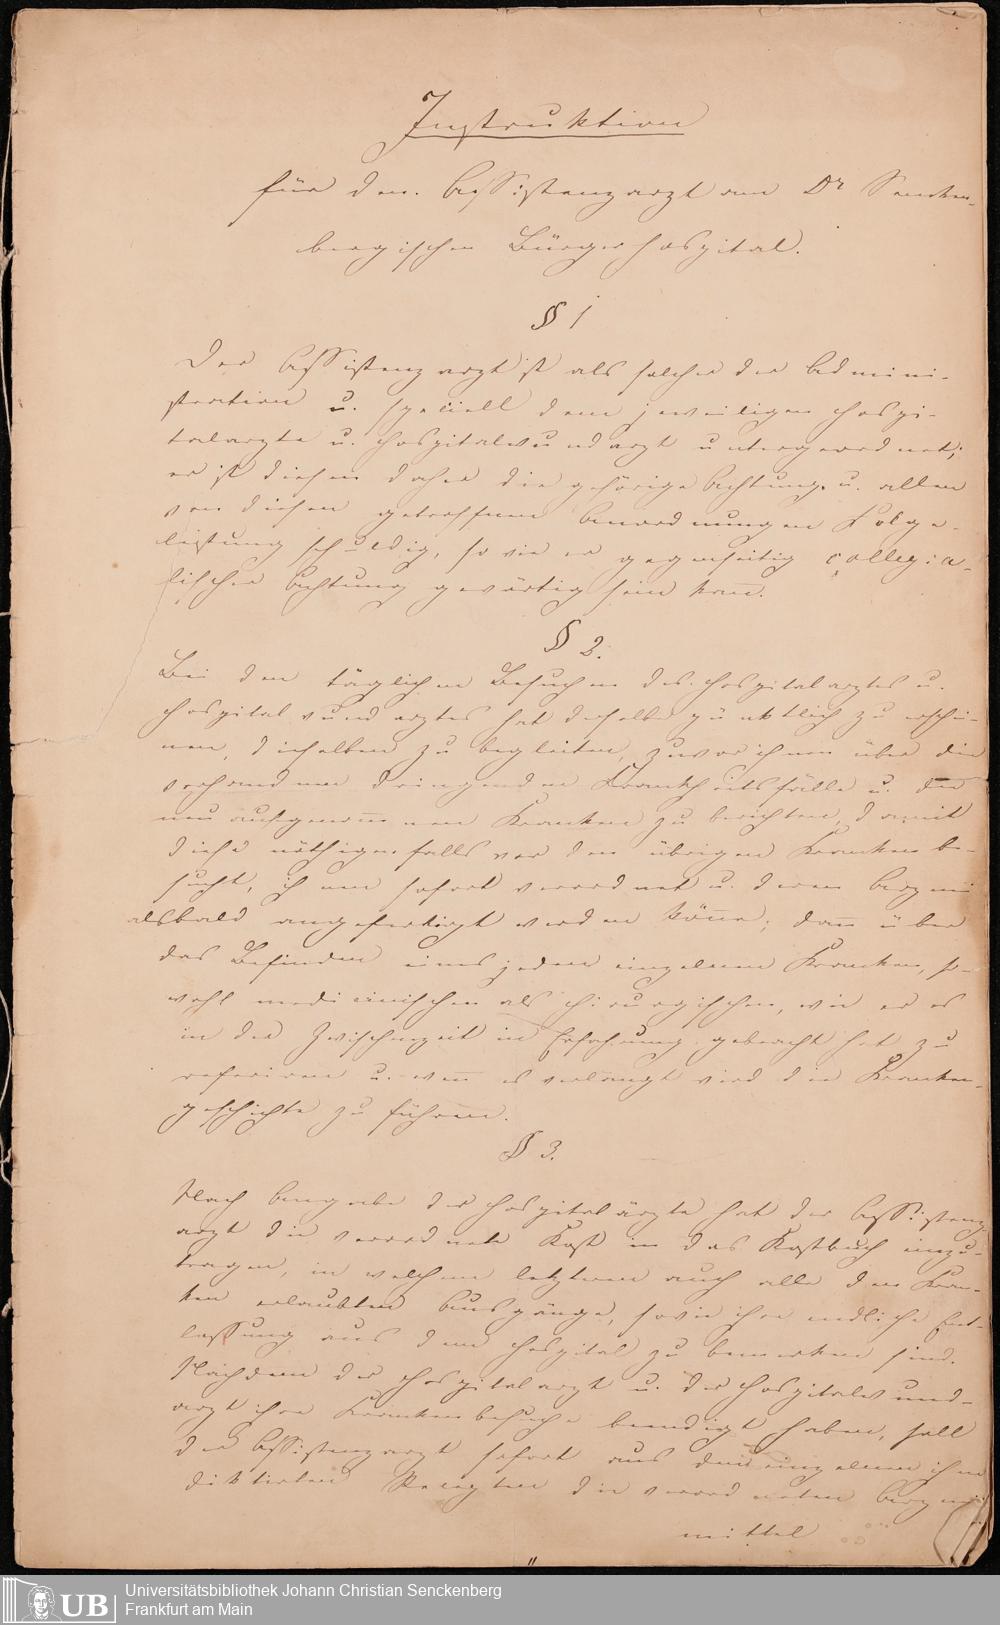 Instruktion
für den Assistenzarzt am Dr Sencken-
bergischen Bürgerhospital.
§ 1
Der Assistenzarzt ist als solcher der Admini-
stration u. speciell dem jeweiligen Hospi-
talarzte u. Hospitalwundarzt untergeordnet;
er ist diesen daher die gehörige Achtung u. allen
von diesen getroffenen Anordnungen Folge-
leistung schuldig, so wie er gegenseitig collegia-
lischer Achtung gewärtig sein kan̅.
§ 2.
Bei den täglichen Besuchen des Hospitalarztes u.
Hospitalwundarztes hat derselbe pünktlich zu erschei-
nen, dieselben zu begleiten, zuvor ihnen über die
vorhandenen dringenden Krankheitsfälle u. die
neu aufgenom̅enen Kranken zu berichten, damit
diese nöthigenfalls vor den übrigen Kranken be-
sucht, ihnen sofort verordnet u. deren Arznei
alsbald angefertigt werden kön̅e; dan̅ über
das Befinden eines jeden einzelnen Kranken, so-
wohl medicinischen als chirurgischen, wie er es
in der Zwischenzeit in Erfahrung gebracht hat zu
referiren u. wen̅ es verlangt wird die Kranken-
geschichte zu führen.
§ 3.
Nach Angabe der Hospitalärzte hat der Assistenz-
arzt die verordnete Kost in das Kostbuch einzu-
tragen, in welchem letzteren auch alle den Kran-
ken erlaubten Ausgänge, sowie ihre endliche Ent-
lassung aus dem Hospital zu bemerken sind.
Nachdem der Hospitalarzt u. der Hospitalwund-
arzt ihre Krankenbesuche beendigt haben, soll
der Assistenzarzt sofort aus den einzelnen ihm
diktirten Recepten die verordneten Arznei
mittel
Universitätsbibliothek Johann Christian Senckenberg
Frankfurt am Main
UB